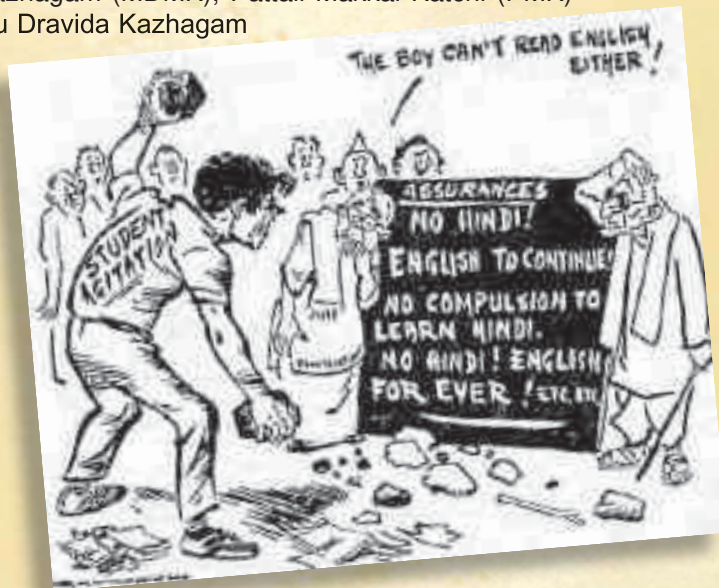 azhagam (MDMK), Pattali Makkal Katchi (PMK)
u Dravida Kazhagam
THE BOY CAN'T READ ENGLISH
EITHER!
STUDENT
AGITATION
ASSURANCES
NO HINDI!
ENGLISH TO CONTINUE!
NO COMPULSION TO
LEARN HINDI.
NO HINDI! ENGLISH
FOR EVER! ETC. ETC